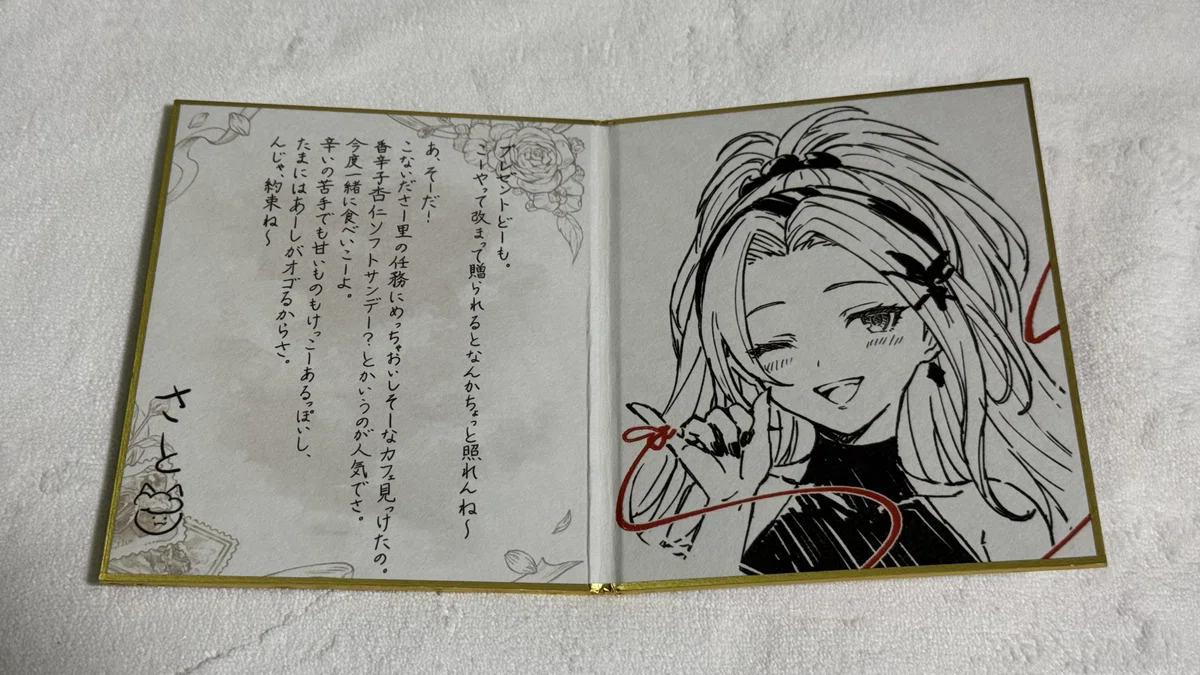 プレゼントどーも。
こーやって改まって贈られるとなんかちょっと照れんね〜
あ、そーだ!
こないださー里の任務にめっちゃおいしそーなカフェ見っけたの。
香辛子杏仁ソフトサンデー?とかいうのが人気でさ。
今度一緒に食べいこーよ。
辛いの苦手でも甘いものもけっこーあるっぽいし、
たまにはあーしがオゴるからさ。
んじゃ、約束ね〜
さと